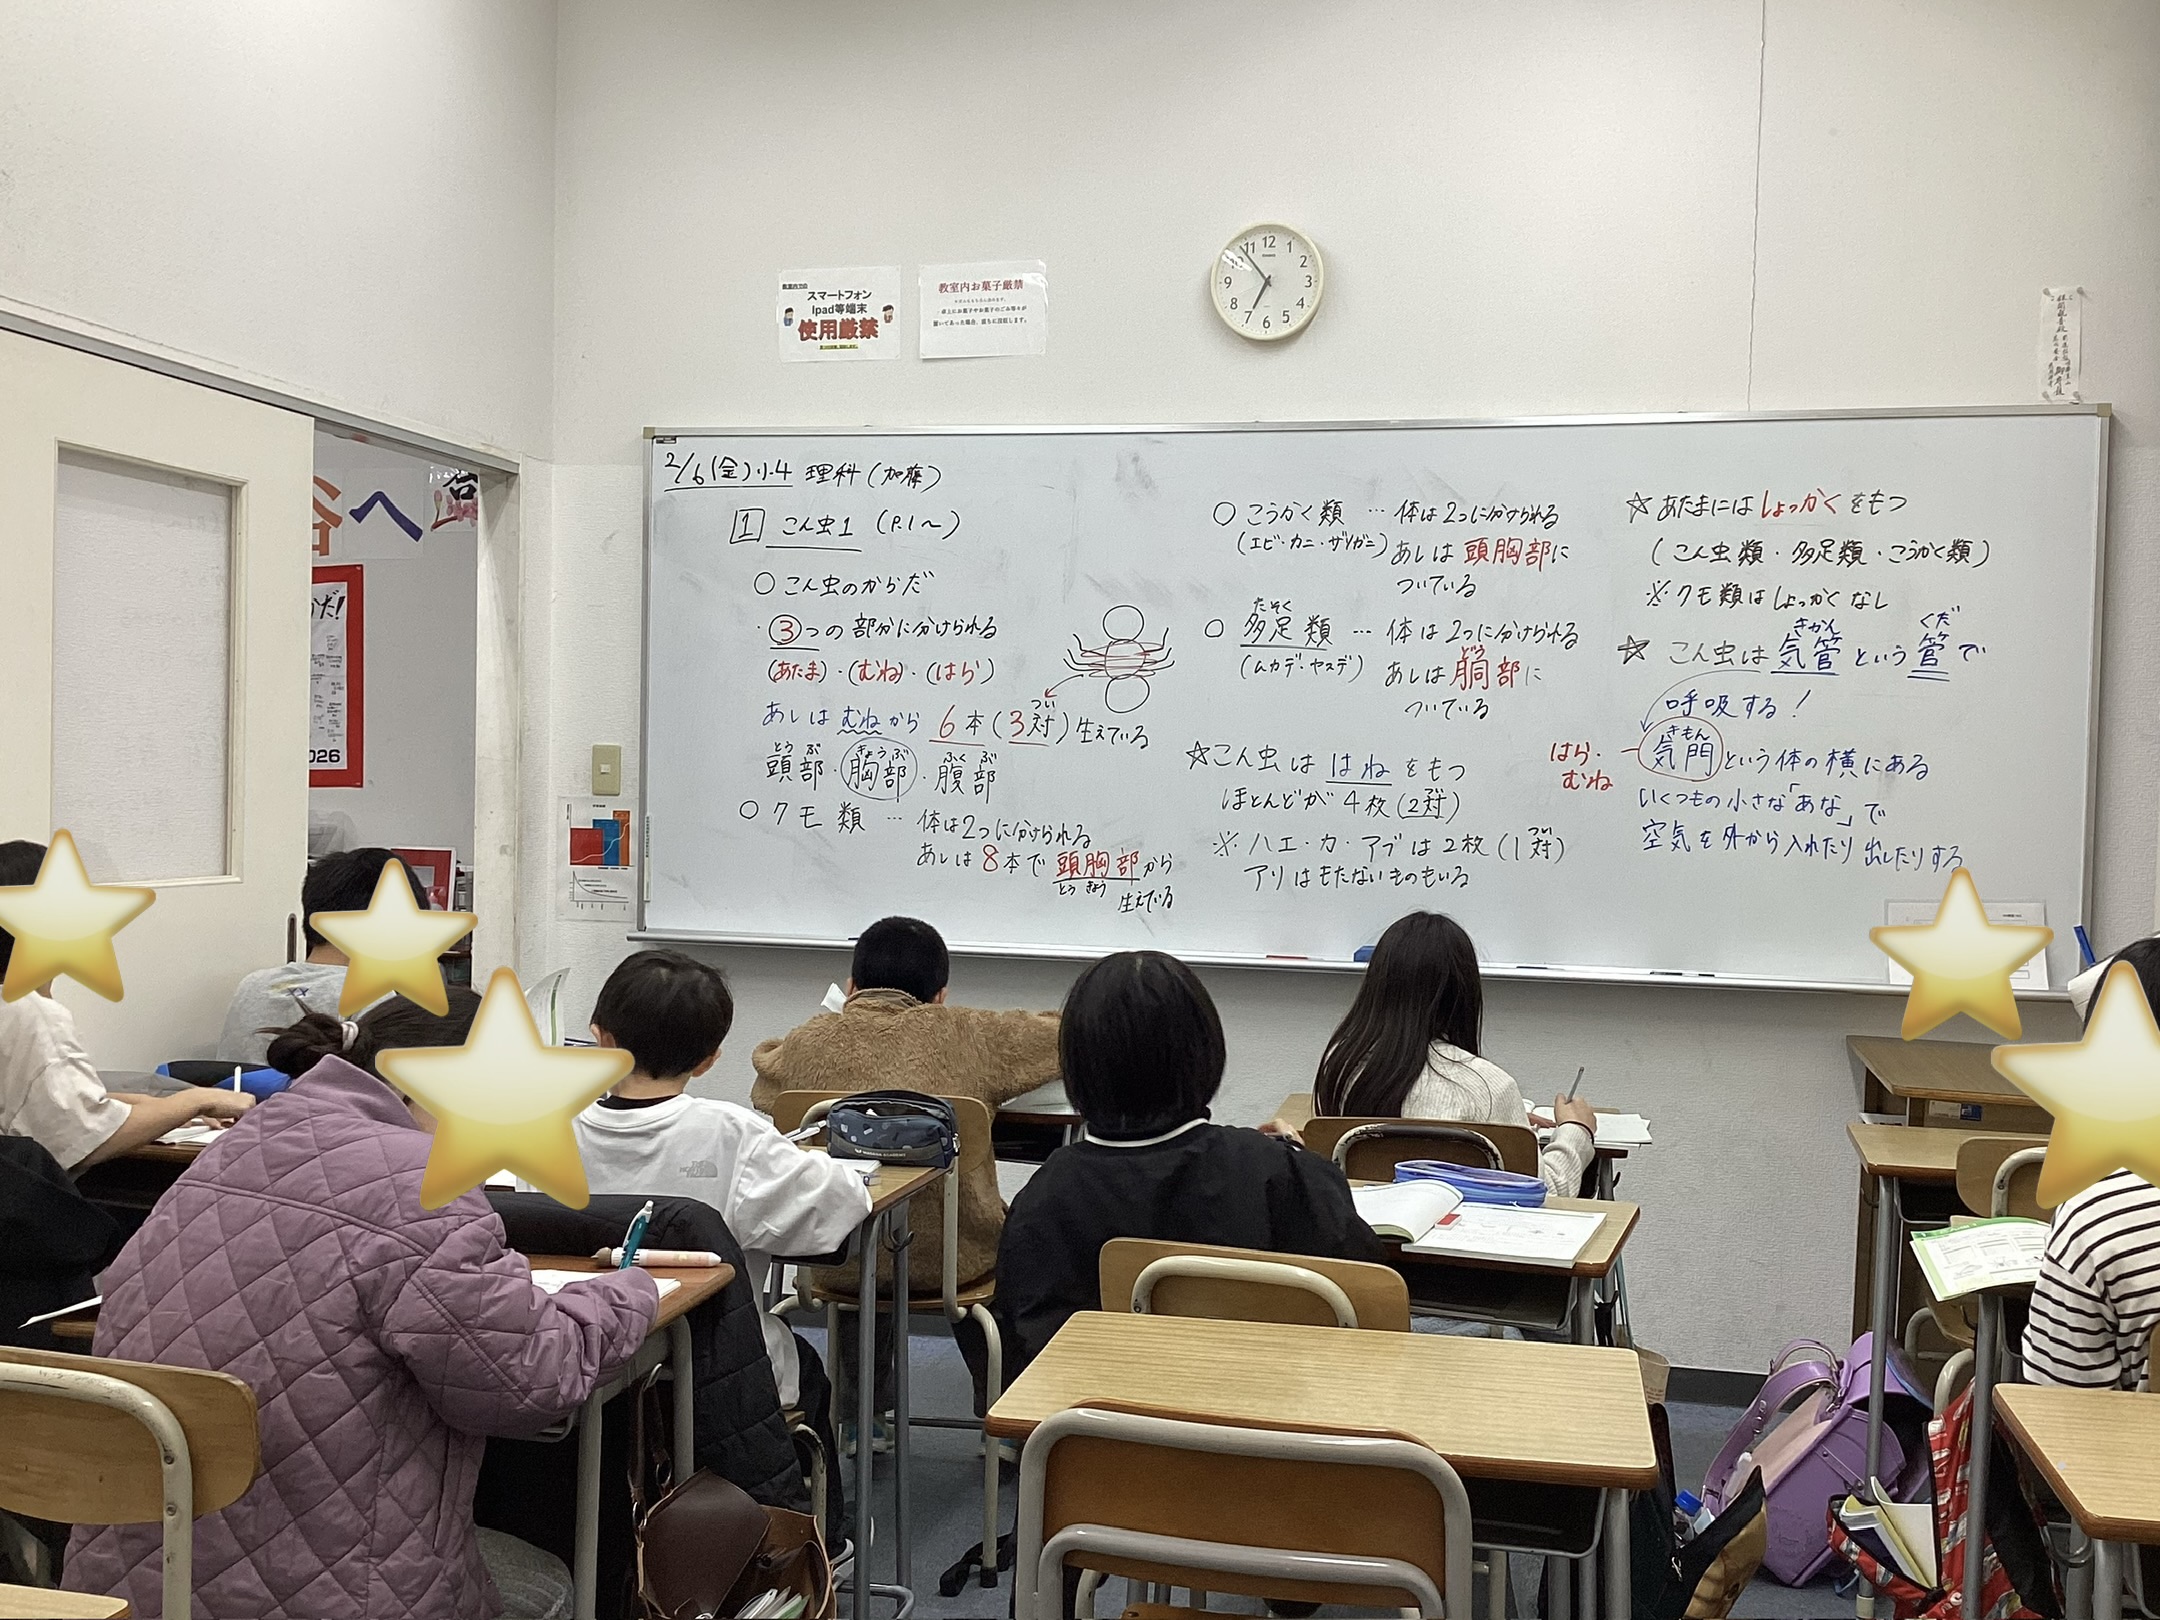 教室内での
スマートフォン
Ipad等端末
使用厳禁
教室内お菓子厳禁
卓上にお菓子やお菓子のごみ等々が
置いてあった場合、直ちに没収します。
11 12 1
10 2
9 3
8 4
7 6 5
谷へ 合
だ!
026
2/6(金)小4 理科(加藤)
1 こん虫1 (P.1〜)
○ こん虫のからだ
・③つの部分に分けられる
(あたま)・(むね)・(はら)
あしはむねから 6本(3対)生えている
つい
とう ぶ きょうぶ ふく ぶ
頭部・胸部・腹部
○ クモ類 … 体は2つに分けられる
あしは8本で頭胸部から
とう きょう
生えている
○ こうかく類 … 体は2つに分けられる
(エビ・カニ・ザリガニ) あしは頭胸部に
ついている
たそく
○ 多足類 … 体は2つに分けられる
(ムカデ・ヤスデ) あしは胴部に
どう
ついている
☆こん虫は はねをもつ
ほとんどが4枚(2対)
※ハエ・カ・アブは2枚(1対)
つい
アリはもたないものもいる
☆あたまにはしょっかくをもつ
(こん虫類・多足類・こうかく類)
※クモ類はしょっかくなし
きかん くだ
☆ こん虫は気管という管で
呼吸する!
はら・むね
きもん
気門という体の横にある
いくつもの小さな「あな」で
空気を外から入れたり出したりする
THE NORTH FACE